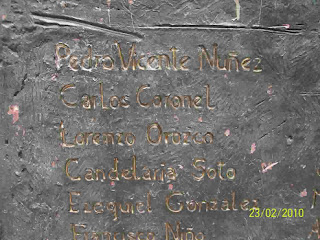 Pedro Vicente Nuñez
Carlos Coronel
Lorenzo Orozco
Candelaria Soto
Ezequiel Gonzales
Francisco Niño
23/02/2010